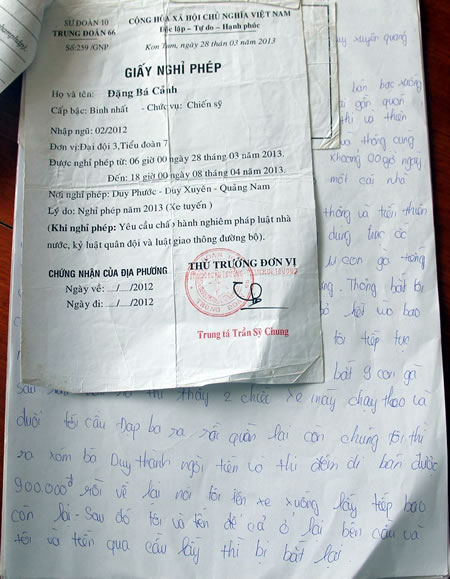 SƯ ĐOÀN 10
TRUNG ĐOÀN 66
Số: 259 /GNP
CỘNG HÒA XÃ HỘI CHỦ NGHĨA VIỆT NAM
Độc lập – Tự do – Hạnh phúc
Kon Tum, ngày 28 tháng 03 năm 2013
GIẤY NGHỈ PHÉP
Họ và tên: Đặng Bá Cảnh
Cấp bậc: Binh nhất - Chức vụ: Chiến sỹ
Nhập ngũ: 02/2012
Đơn vị: Đại đội 3, Tiểu đoàn 7
Được nghỉ phép từ: 06 giờ 00 ngày 28 tháng 03 năm 2013.
Đến: 18 giờ 00 ngày 08 tháng 04 năm 2013.
Nơi nghỉ phép: Duy Phước - Duy Xuyên - Quảng Nam
Lý do: Nghỉ phép năm 2013 (Xe tuyến )
(Khi nghỉ phép: Yêu cầu chấp hành nghiêm pháp luật nhà
nước, kỷ luật quân đội và luật giao thông đường bộ).
CHỨNG NHẬN CỦA ĐỊA PHƯƠNG
Ngày về: .../.../2012
Ngày đi: .../.../2012
THỦ TRƯỞNG ĐƠN VỊ
Trung tá Trần Sỹ Chung
duy xuyên quang
bán bọc xuông
gần quán
thi và thiên
và thông cung
khoang 00 giờ ngày
một cái nhà
thông và tiên thuân
dung trưc ốc
con gà trông
Thông bắt bỏ
kết vo bao
tôi tiếp tục
bắt 9 con gà
sau thi thấy 2 chiếc xe máy chạy theo và
đuôi tôi câu đạp ba ra rồi quăn lai còn chúng tôi thì
ra xóm bá Duy thanh ngồi tiên vo thi đêm đi bán được
900.000đ rồi về lai nói tôi lên xe xuông lấy tiếp bao
còn lai - Sau đó tôi và tên đê cả ở lai bên câu và
tôi và tiên qua cầu lấy thì bị bắt lại